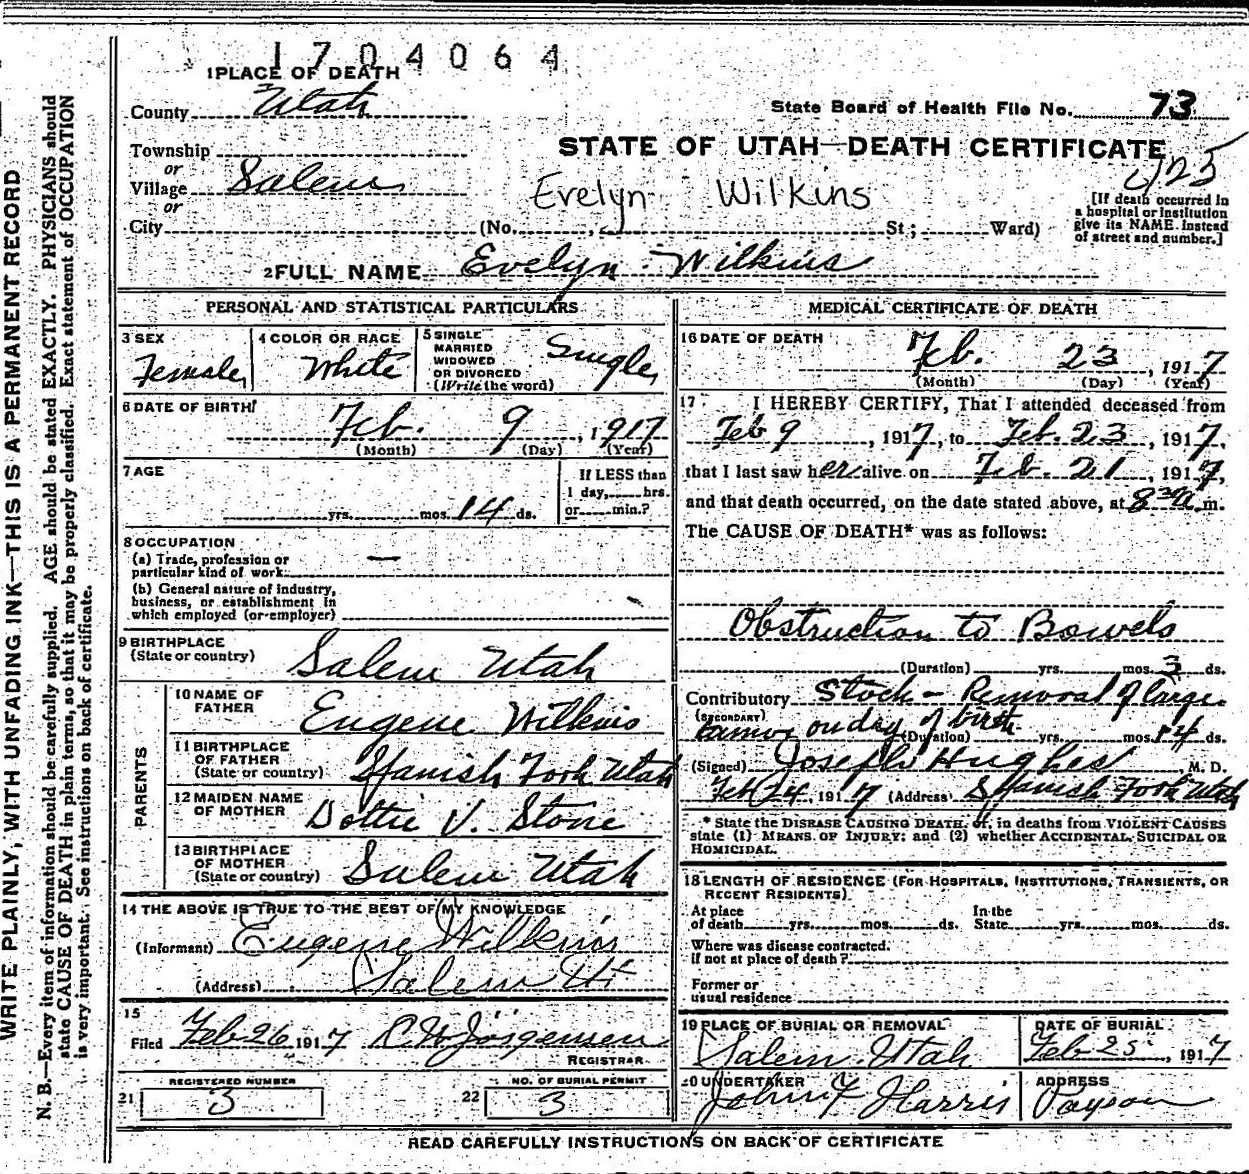 1704064
1 PLACE OF DEATH
County Utah
State Board of Health File No. 73
Township
or
Village Salem
or
City
STATE OF UTAH—DEATH CERTIFICATE
Evelyn Wilkins
(No. , St; Ward)
[If death occurred in
a hospital or institution
give its NAME instead
of street and number.]
2 FULL NAME Evelyn Wilkins
PERSONAL AND STATISTICAL PARTICULARS
3 SEX
Female
4 COLOR OR RACE
White
5 SINGLE
MARRIED
WIDOWED
OR DIVORCED
(Write the word)
Single
6 DATE OF BIRTH
Feb. 9, 1917
(Month) (Day) (Year)
7 AGE
yrs. mos. 14 ds.
If LESS than
1 day, hrs.
or min.?
8 OCCUPATION
(a) Trade, profession or
particular kind of work —
(b) General nature of industry,
business, or establishment in
which employed (or employer)
9 BIRTHPLACE
(State or country) Salem Utah
PARENTS
10 NAME OF
FATHER Eugene Wilkins
11 BIRTHPLACE
OF FATHER
(State or country) Spanish Fork Utah
12 MAIDEN NAME
OF MOTHER Dottie V. Stone
13 BIRTHPLACE
OF MOTHER
(State or country) Salem Utah
14 THE ABOVE IS TRUE TO THE BEST OF MY KNOWLEDGE
(Informant) Eugene Wilkins
(Address) Salem Ut
15
Filed Feb 26 1917 R W Jorgensen
REGISTRAR
REGISTERED NUMBER
21 3
NO. OF BURIAL PERMIT
22 3
MEDICAL CERTIFICATE OF DEATH
16 DATE OF DEATH
Feb. 23, 1917
(Month) (Day) (Year)
17 I HEREBY CERTIFY, That I attended deceased from
Feb 9, 1917, to Feb. 23, 1917,
that I last saw her alive on Feb. 21, 1917,
and that death occurred, on the date stated above, at 8 30 a m.
The CAUSE OF DEATH* was as follows:
Obstruction to Bowels
(Duration) yrs. mos. 3 ds.
Contributory Shock - Removal of large
(SECONDARY)
tumor on day of birth
(Duration) yrs. mos. 14 ds.
(Signed) Joseph Hughes M. D.
Feb 24, 1917 (Address) Spanish Fork Utah
* State the DISEASE CAUSING DEATH, or, in deaths from VIOLENT CAUSES
state (1) MEANS OF INJURY; and (2) whether ACCIDENTAL, SUICIDAL OR
HOMICIDAL.
18 LENGTH OF RESIDENCE (FOR HOSPITALS, INSTITUTIONS, TRANSIENTS, OR
RECENT RESIDENTS)
At place
of death yrs. mos. ds.
In the
State yrs. mos. ds.
Where was disease contracted.
If not at place of death?
Former or
usual residence
19 PLACE OF BURIAL OR REMOVAL
Salem Utah
DATE OF BURIAL
Feb 25, 1917
20 UNDERTAKER
John F Harris
ADDRESS
Payson
READ CAREFULLY INSTRUCTIONS ON BACK OF CERTIFICATE
WRITE PLAINLY, WITH UNFADING INK—THIS IS A PERMANENT RECORD
N. B.—Every item of information should be carefully supplied. AGE should be stated EXACTLY. PHYSICIANS should
state CAUSE OF DEATH in plain terms, so that it may be properly classified. Exact statement of OCCUPATION
is very important. See instructions on back of certificate.